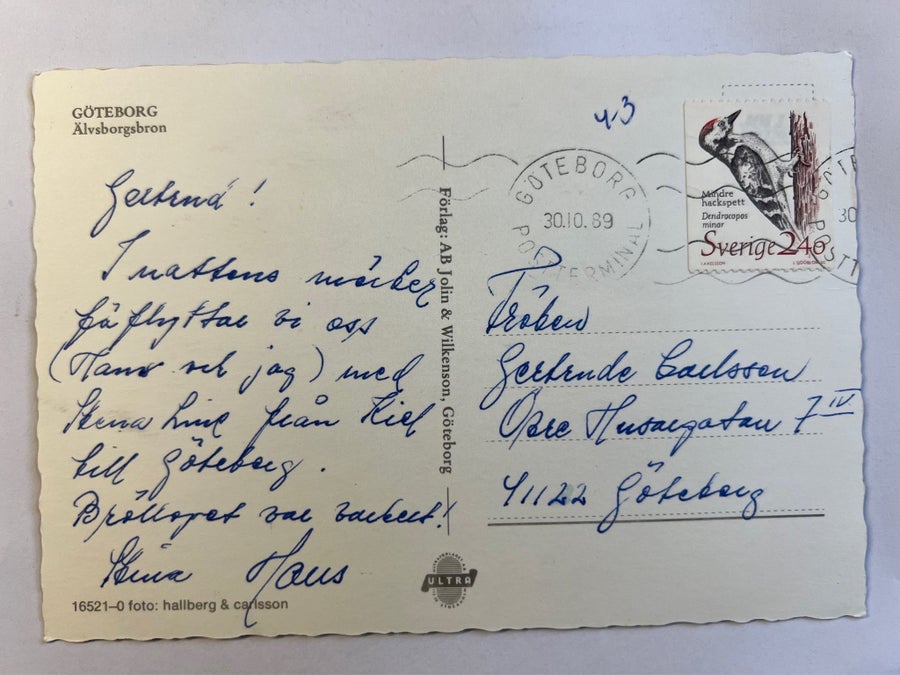 GÖTEBORG
Älvsborgsbron
Gertrud!
I nattens mörker
förflyttar vi oss
(Hans och jag) med
Stena Line från Kiel
till Göteborg.
Bröllopet var vackert!
Stina Hans
16521–0 foto: hallberg & carlsson
Förlag: AB Jolin & Wilkenson, Göteborg
ULTRA
4-3
GÖTEBORG
30.10.89
POSTTERMINAL
Mindre
hackspett
Dendrocopos
minor
Sverige 240
Fröken
Gertrude Carlsson
Övre Husargatan 7 IV
41122 Göteborg